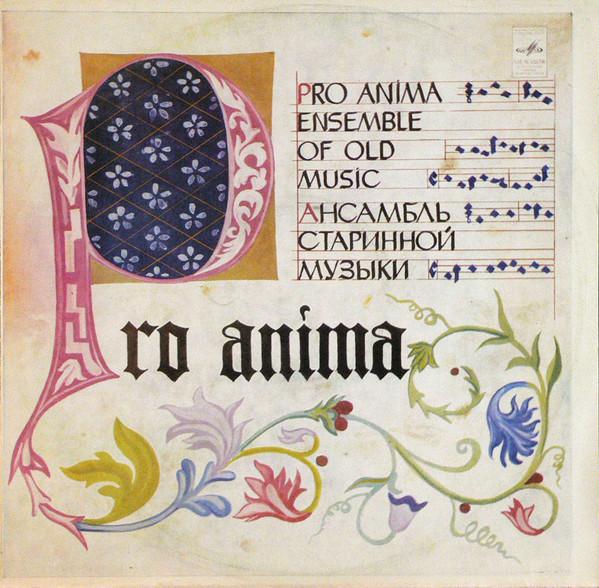 PRO ANIMA
ENSEMBLE
OF OLD
MUSIC
АНСАМБЛЬ
СТАРИННОЙ
МУЗЫКИ
Pro anima